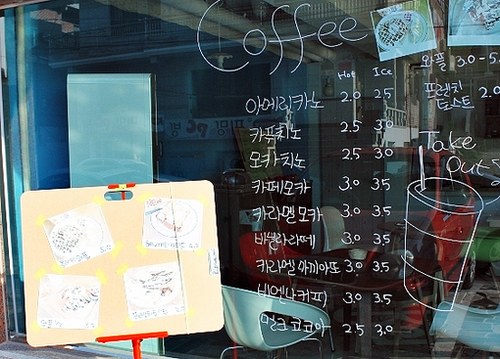 Coffee
Hot Ice
아메리카노 2.0 2.5
카푸치노 2.5 3.0
모카치노 2.5 3.0
카페모카 3.0 3.5
카라멜모카 3.0 3.5
바닐라라떼 3.0 3.5
카라멜마끼아또 3.0 3.5
비엔나커피 3.0 3.5
밀크코코아 2.5 3.0
와플 3.0 - 5.
프렌치
토스트 2.0
Take
Out